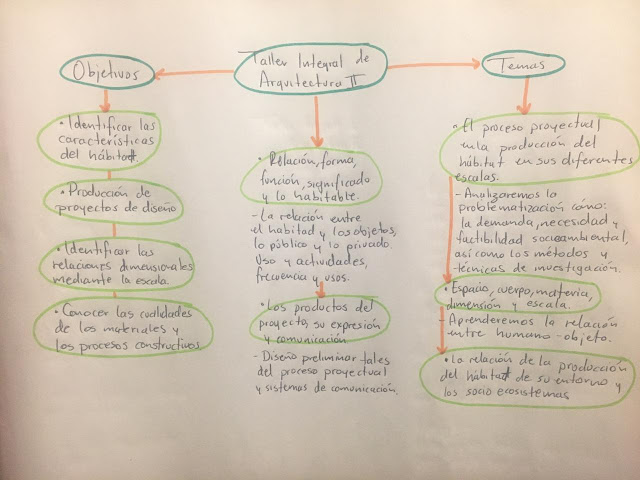 Taller Integral de
Arquitectura II
Objetivos
• Identificar las
características
del hábitat.
• Producción de
proyectos de diseño
• Identificar las
relaciones dimensionales
mediante la escala.
• Conocer las cualidades
de los materiales y
los procesos constructivos.
• Relación, forma,
función, significado
y lo habitable.
- La relación entre
el habitad y los objetos,
lo público y lo privado.
Uso y actividades,
frecuencia y usos.
• Los productos del
proyecto, su expresión
y comunicación
- Diseño preliminar tales
del proceso proyectual
y sistemas de comunicación.
Temas
• El proceso proyectual
en la producción del
hábitat en sus diferentes
escalas.
- Analizaremos la
problematización cómo:
la demanda, necesidad y
factibilidad socioambiental,
así como los métodos y
técnicas de investigación.
• Espacio, cuerpo, materia,
dimensión y escala.
- Aprenderemos la relación
entre humano-objeto.
• La relación de la producción
del hábitat de su entorno y
los socio ecosistemas